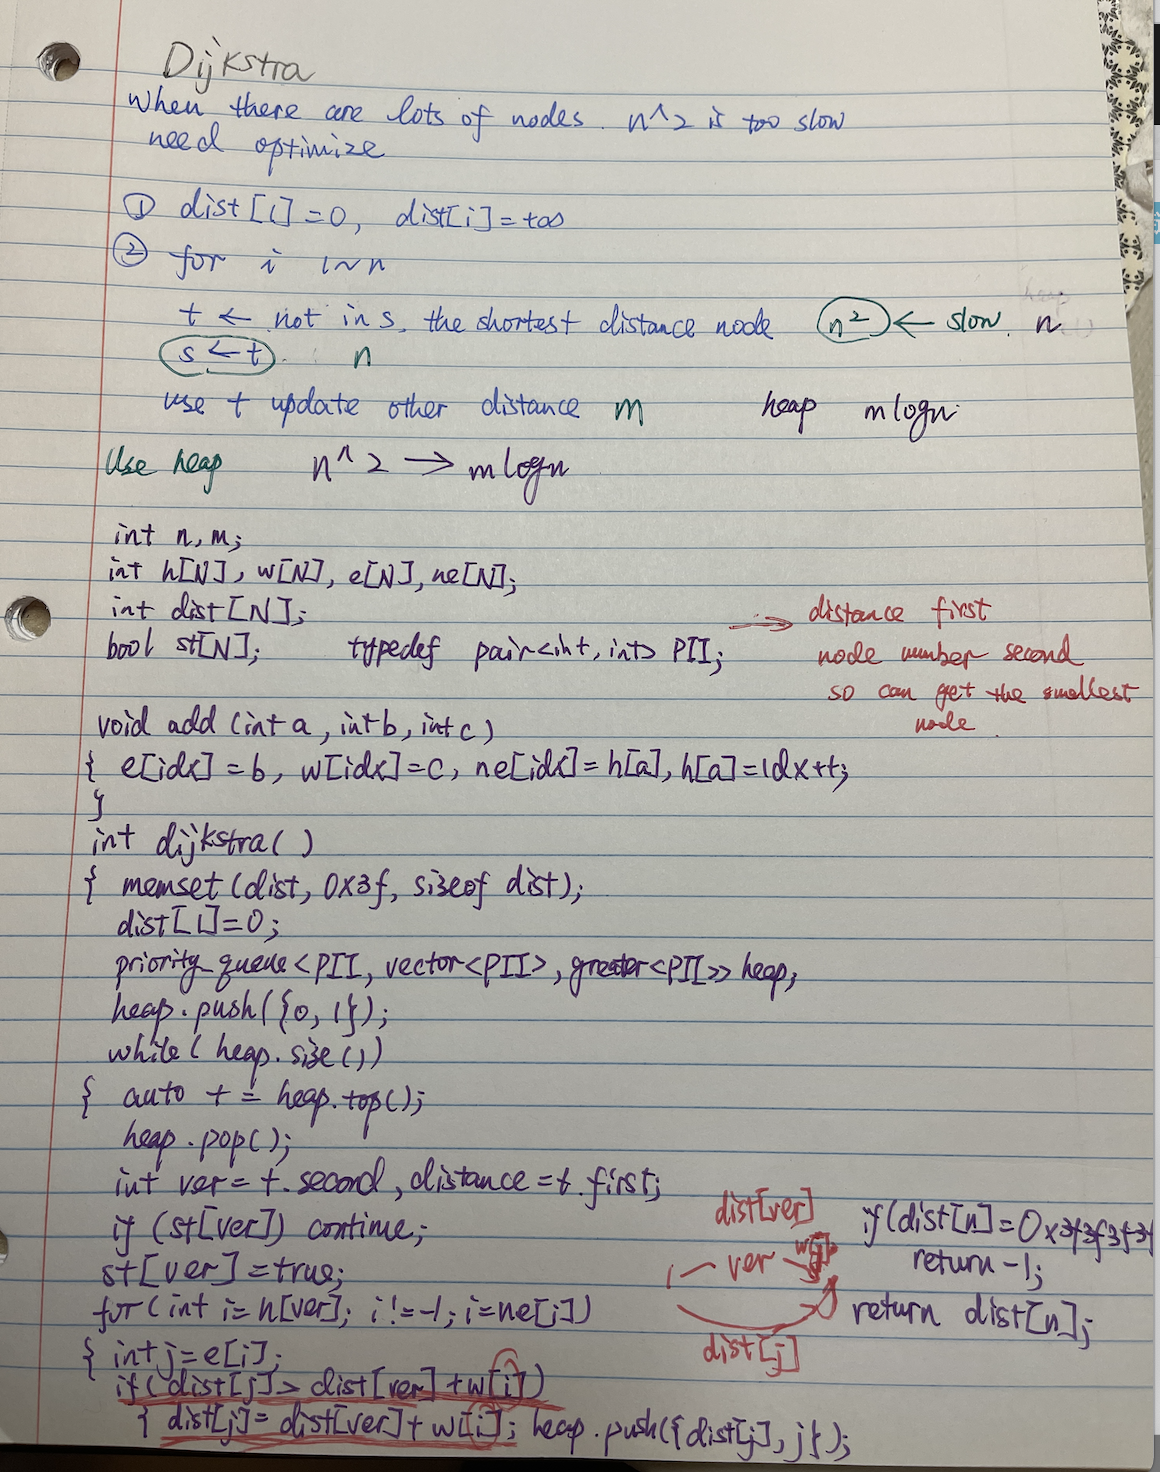 Dijkstra
When there are lots of nodes. n^2 is too slow
need optimize
① dist[1]=0, dist[i]=+∞
② for i 1~n
t ← not in s, the shortest distance node n² ← slow. n
s ← t. n
use t update other distance m heap mlogn
Use heap n^2 → mlogn
int n,m;
int h[N], w[N], e[N], ne[N];
int dist[N];
bool st[N]; typedef pair<int,int> PII;
→ distance first
node number second
so can get the smallest
node.
void add (int a, int b, int c)
{ e[idx]=b, w[idx]=c, ne[idx]=h[a], h[a]=idx++;
}
int dijkstra()
{ memset(dist, 0x3f, sizeof dist);
dist[1]=0;
priority_queue<PII, vector<PII>, greater<PII>> heap;
heap.push({0, 1});
while(heap.size())
{ auto t = heap.top();
heap.pop();
int ver = t.second, distance = t.first;
if (st[ver]) continue;
st[ver]=true;
for(int i=h[ver]; i!=-1; i=ne[i])
{ int j=e[i];
if(dist[j]>dist[ver]+w[i])
{ dist[j]=dist[ver]+w[i]; heap.push({dist[j], j});
dist[ver]
1 ver
dist[j]
if(dist[n]=0x3f3f3f3f
return -1;
return dist[n];